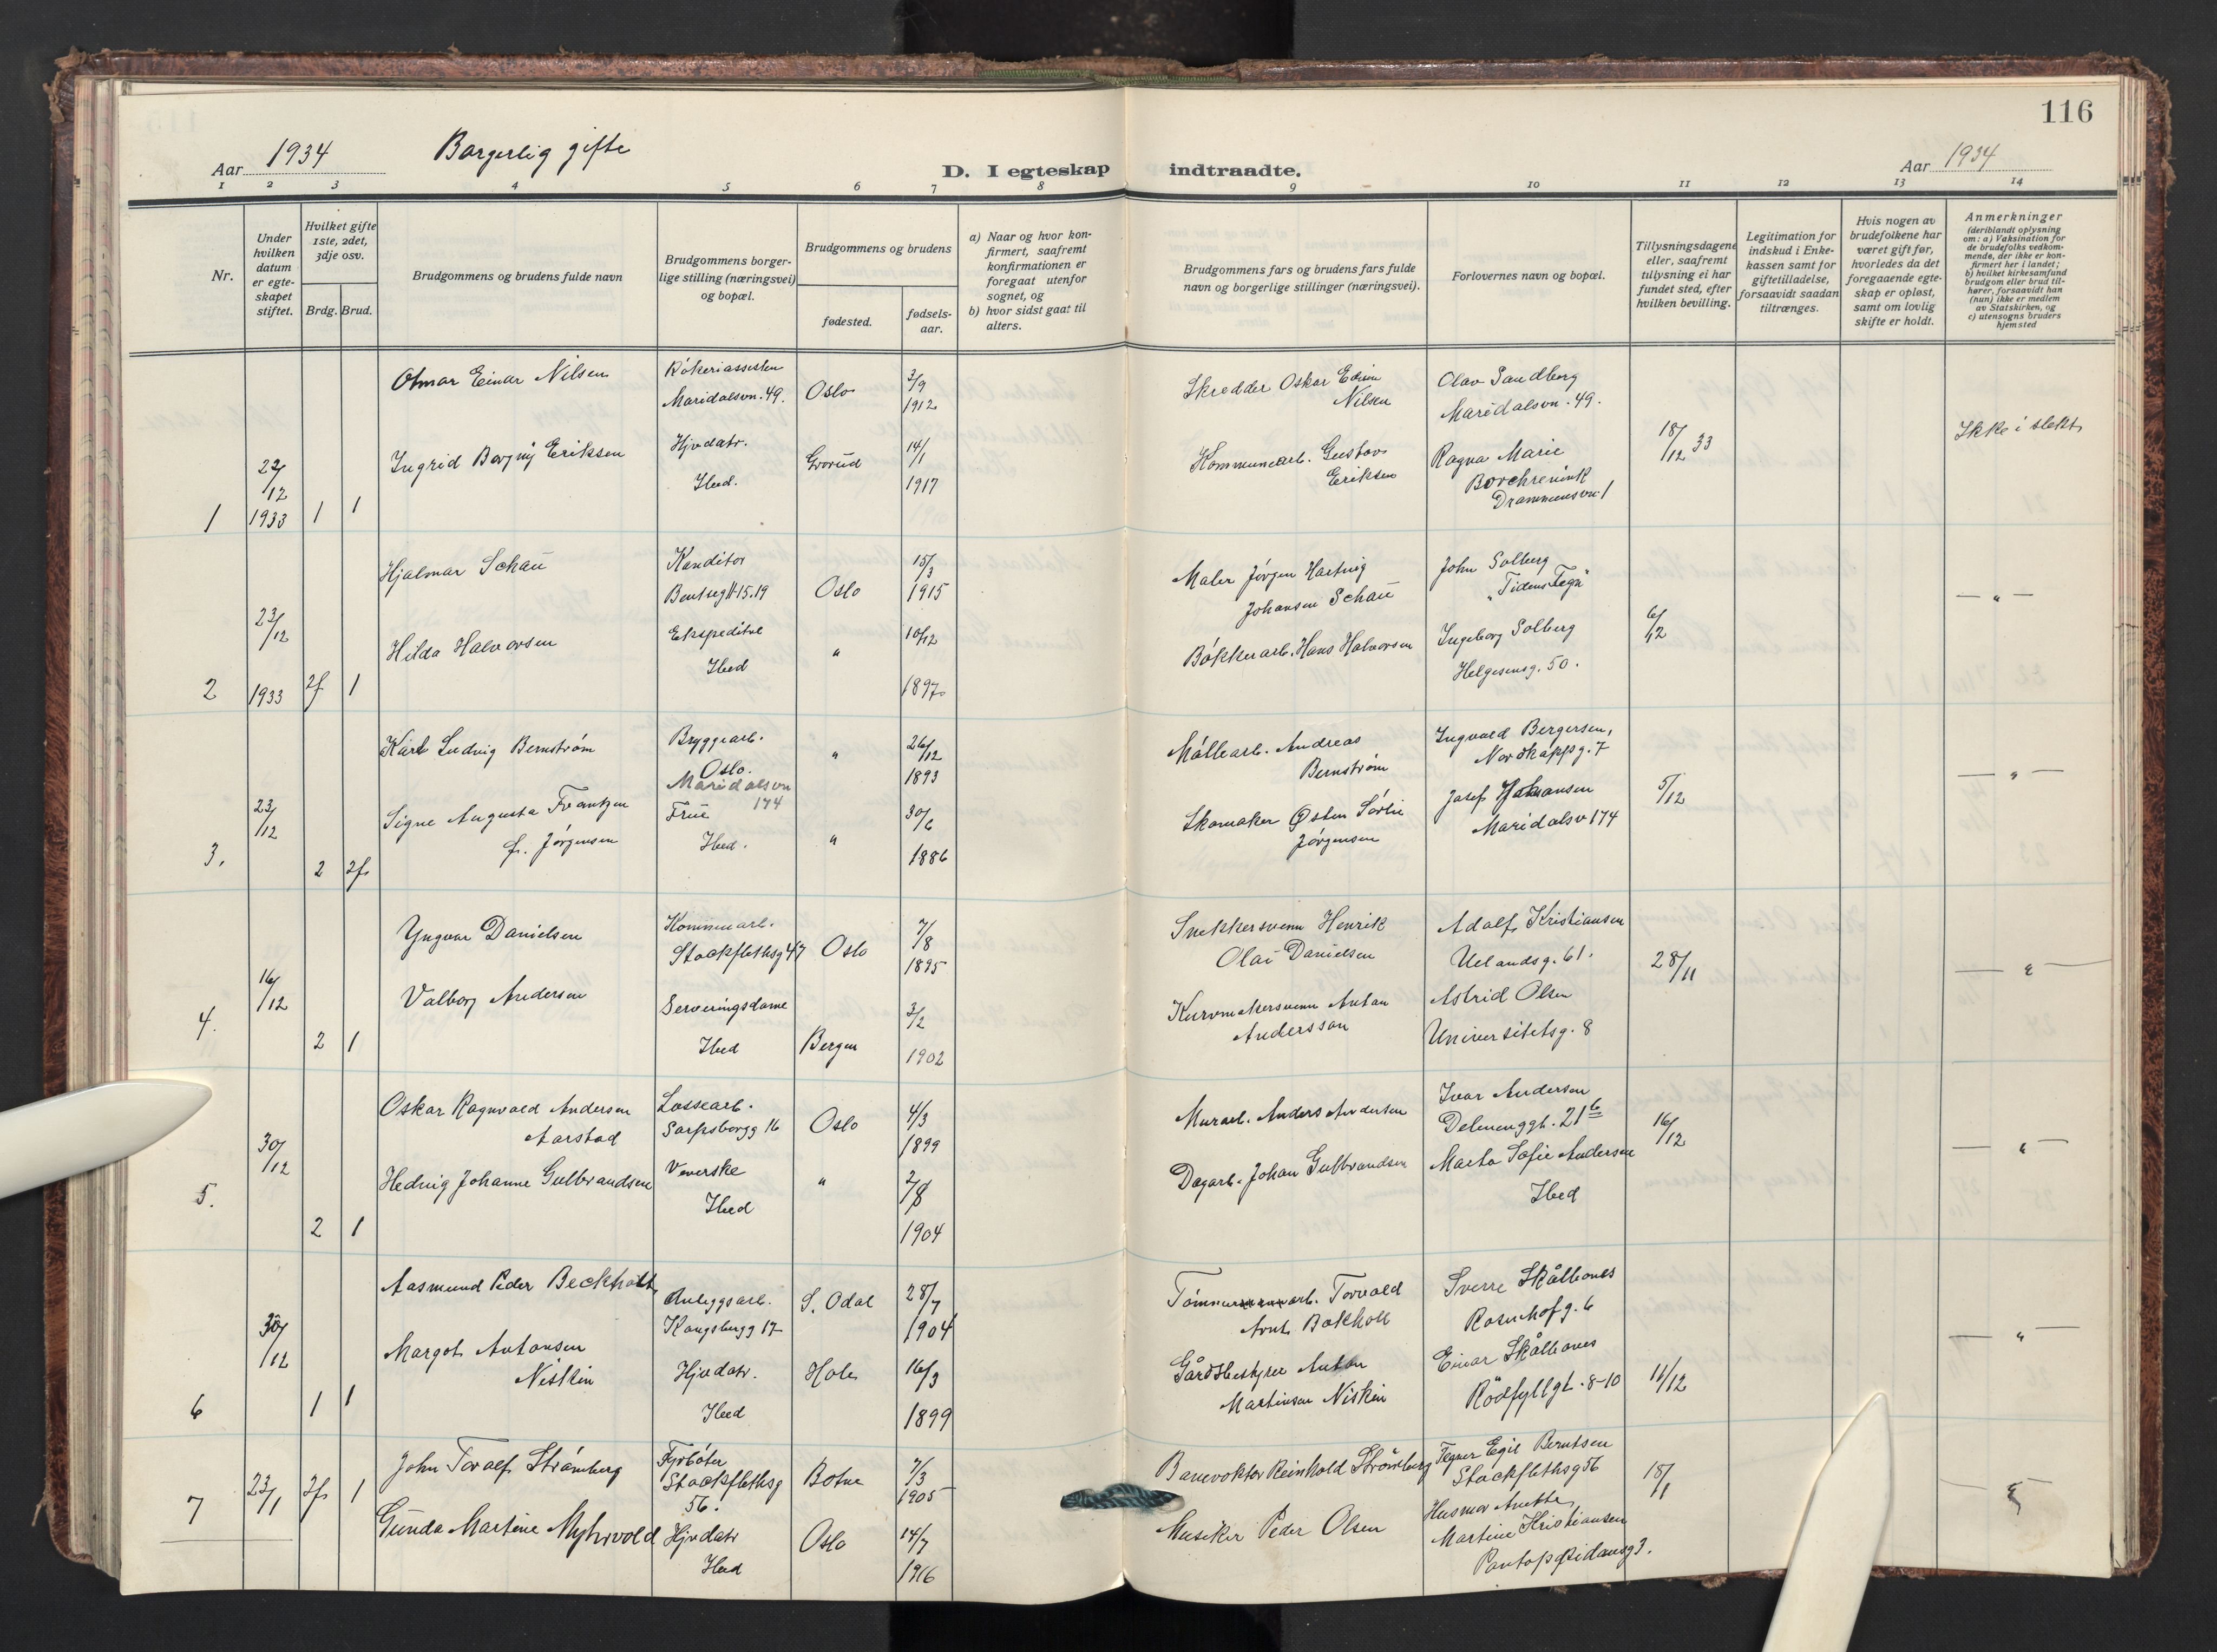 116
Aar 1934 Borgerlig gifte
D. I egteskap indtraadte.
Aar 1934
1 2 3 4 5 6 7 8 9 10 11 12 13 14
Nr.
Under hvilken datum er egteskapet stiftet.
Hvilket gifte 1ste, 2det, 3dje osv.
Brdg. Brud.
Brudgommens og brudens fulde navn
Brudgommens borgerlige stilling (næringsvei) og bopæl.
Brudgommens og brudens
fødested.
fødselsaar.
a) Naar og hvor konfirmert, saafremt konfirmationen er foregaat utenfor sognet, og
b) hvor sidst gaat til alters.
Brudgommens fars og brudens fars fulde navn og borgerlige stillinger (næringsvei).
Forlovernes navn og bopæl.
Tillysningsdagene eller, saafremt tillysning ei har fundet sted, efter hvilken bevilling.
Legitimation for indskud i Enkekassen samt for giftetilladelse, forsaavidt saadan tiltrænges.
Hvis nogen av brudefolkene har været gift før, hvorledes da det foregaaende egteskap er opløst, samt om lovlig skifte er holdt.
Anmerkninger (deriblandt oplysning om: a) Vaksination for de brudefolks vedkommende, der ikke er konfirmert her i landet; b) hvilket kirkesamfund brudgom eller brud tilhører, forsaavidt han (hun) ikke er medlem av Statskirken, og c) utensogns bruders hjemsted
1 22/12 1933 1 1
Otmar Einar Nilsen
Maridalsvn. 49. Oslo 3/9 1912
Skredder Oskar Edvin Nilsen
Olav Sandberg
Maridalsvn. 49.
Ingrid Borgny Eriksen
Hjvdatr. Ibed. Grorud 14/1 1917
Kommunearb. Gustav Eriksen
Ragna Marie
Drammensvn. 1
18/12 33
Ikke i slekt
2 23/12 1933 2f 1
Hjalmar Schau
Konditor
Bentseg 15.19 Oslo 15/3 1915
Maler Jørgen Hartvig
Johansen Schau
John Solberg
"Tidens Tegn"
Hilda Halvorsen
Ekspeditrise
Ibed " 10/12 1897
Bøkkerarb. Hans Halvorsen
Ingeborg Solberg
Helgesensg. 50.
6/12
- " -
3. 23/12 2 2f
Karl Ludvig Bernstrøm
Bryggearb.
Oslo.
Maridalsvn 174 " 26/12 1893
Møllearb. Andreas
Bernstrøm
Ingvald Bergersen,
Nordkappg. 7
Signe Augusta Frantzen
f. Jørgensen
Frue
Ibed. " 30/6 1886
Skomaker Østen Sørlie
Jørgensen
Josef Johansen
Maridalsv 174
5/12
- " -
4. 16/12 2 1
Yngvar Danielsen
Kommunearb.
Stockflethsg 47 Oslo 7/8 1895
Snekkersvenn Henrik
Olai Danielsen
Adolf Kristiansen
Uelandsg. 61.
Valborg Andersen
Serveringsdame
Ibed Bergen 3/2 1902
Kurvmakersvenn Anton
Andersson
Astrid Olsen
Universitetsg. 8
28/11
- " -
5. 30/12 2 1
Oskar Ragnvald Andersen
Aarstad
Lossearb.
Sarpsborgg 16 Oslo 4/3 1899
Murarb. Anders Andersen
Ivar Andersen
Delenenggt. 21b
Hedvig Johanne Gulbrandsen
Veverske
Ibed " 2/8 1904
Dagarb. Johan Gulbrandsen
Marta Sofie Andersen
Ibed
16/12
- " -
6 30/12 1 1
Aasmund Peder Beckholt
Anleggsarb.
Kongsbergg 17 S. Odal 28/7 1904
Tømmerarb. Torvald
Arnt Bakholt
Sverre Skålbones
Rosenhofg. 6
Margot Antonsen
Niskin
Hjvdatr.
Ibed Hole 16/3 1899
Gårdsbestyrer Anton
Martinsen Niskin
Einar Skålbones
Rødfyllgt. 8-10
11/12
- " -
7 23/1 2f 1
John Toralf Strømberg
Fyrbøter
Stockflethsg
56. Botne 7/3 1905
Banevokter Reinhold Strømberg
Tegner Egil Berntsen
Stockflethsg 56
Gunda Martine Myhrvold
Hjvdatr
Ibed Oslo 14/7 1916
Musiker Peder Olsen
Husmor Anette
Martine Kristiansen
18/1